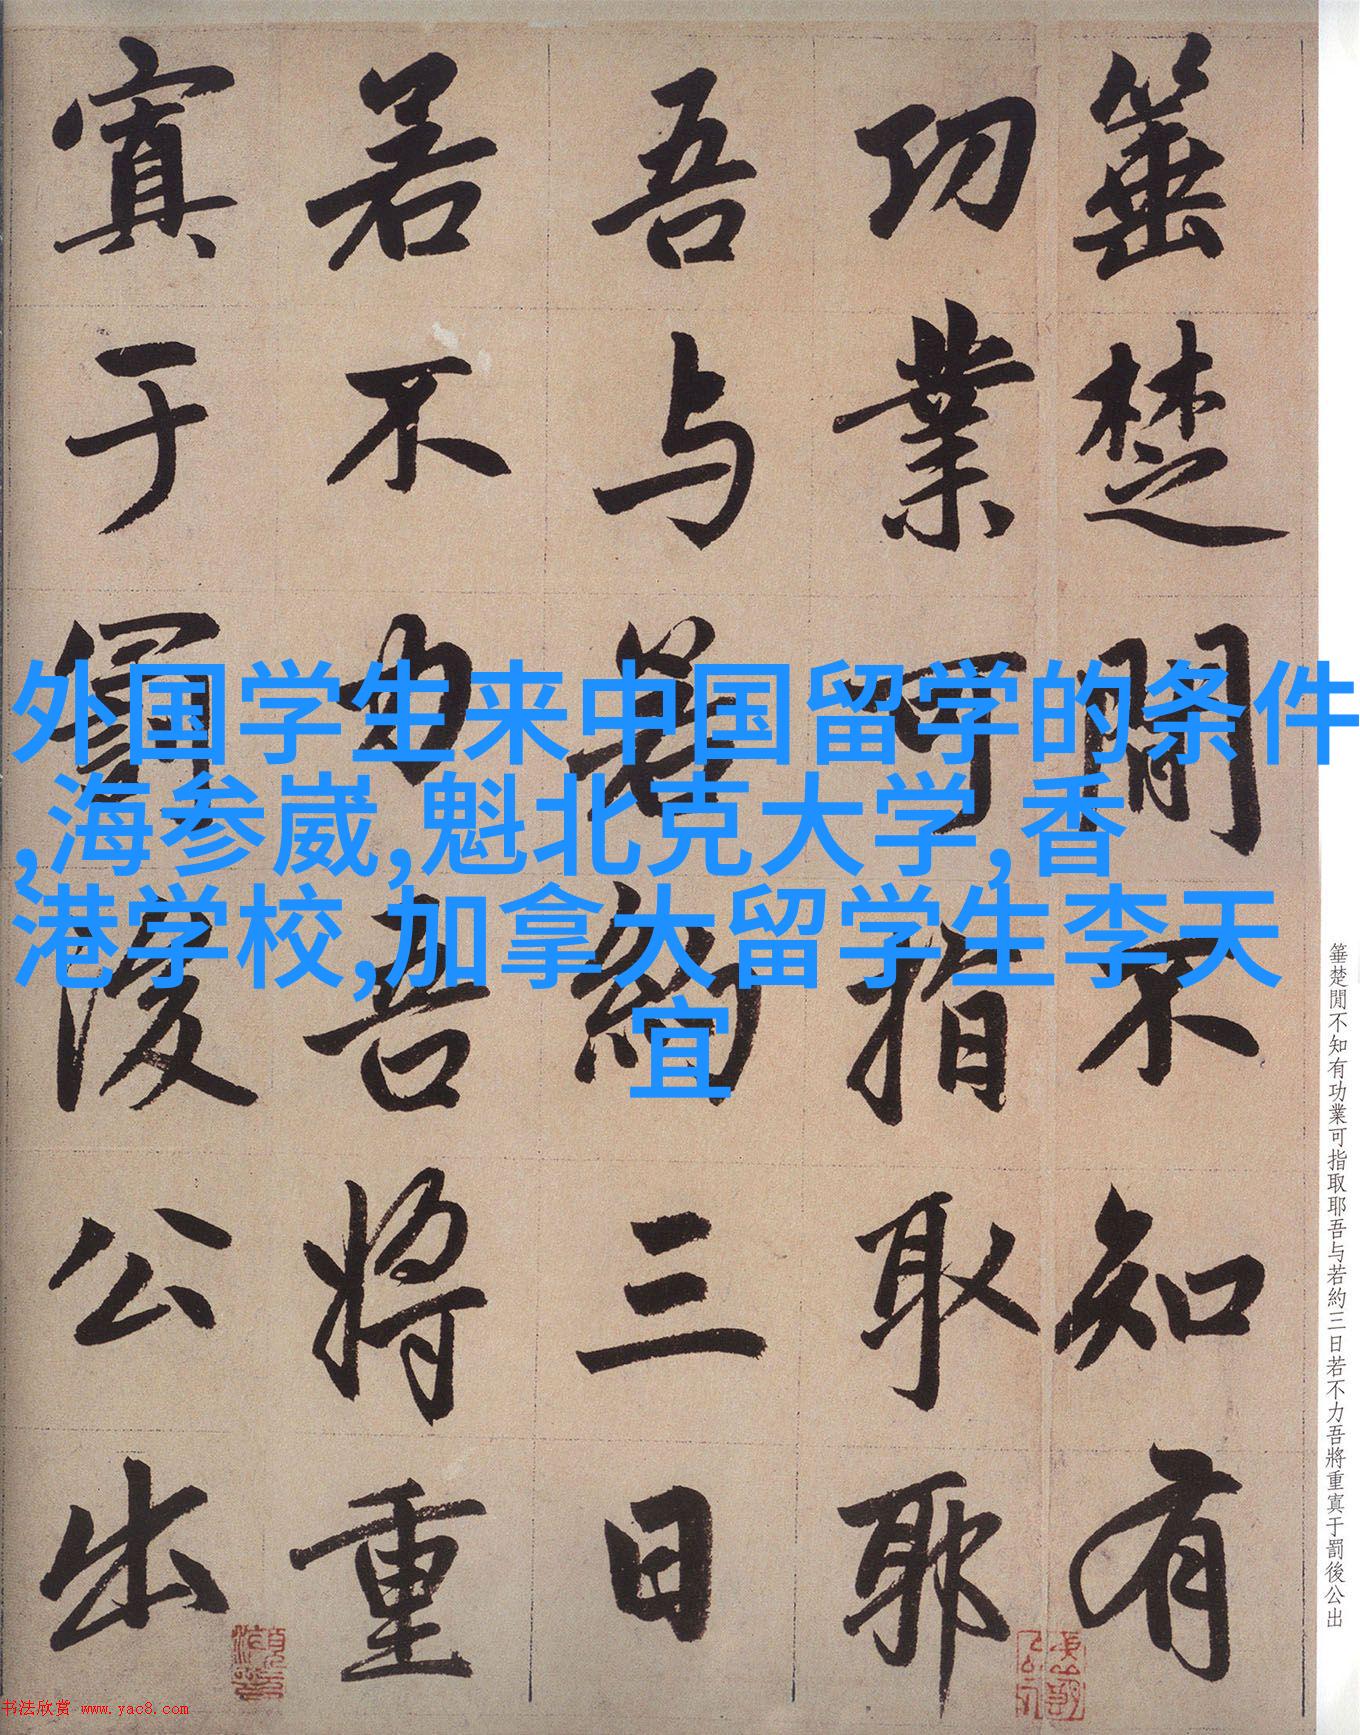 外国学生来中国留学的条件
,海参崴,魁北克大学,香
港学校,加拿大留学生李天
宜
箠楚閒不知有
功業可指取耶
吾与若約三日
若不力吾將重
寘于罰後公出
箠楚閒不知有功業可指取耶吾与若約三日若不力吾將重寘于罰後公出
书法欣赏 www.yac8.com